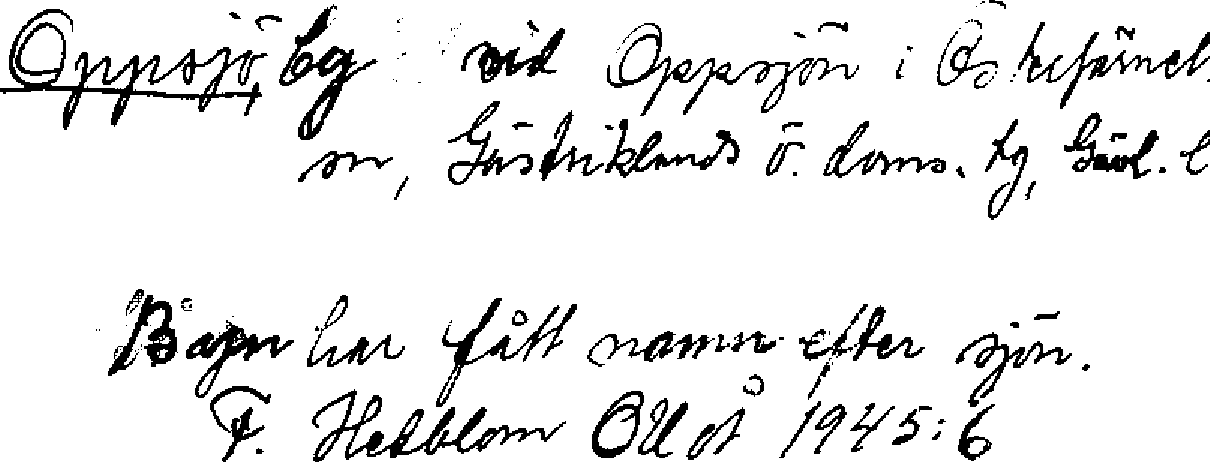 Oppsjö, bg vid Oppsjön i Österfärneb.
sn, Gästriklands ö. doms. tg, Gävl. l
Byn har fått namn efter sjön.
F. Hedblom OUOÅ 1945:6